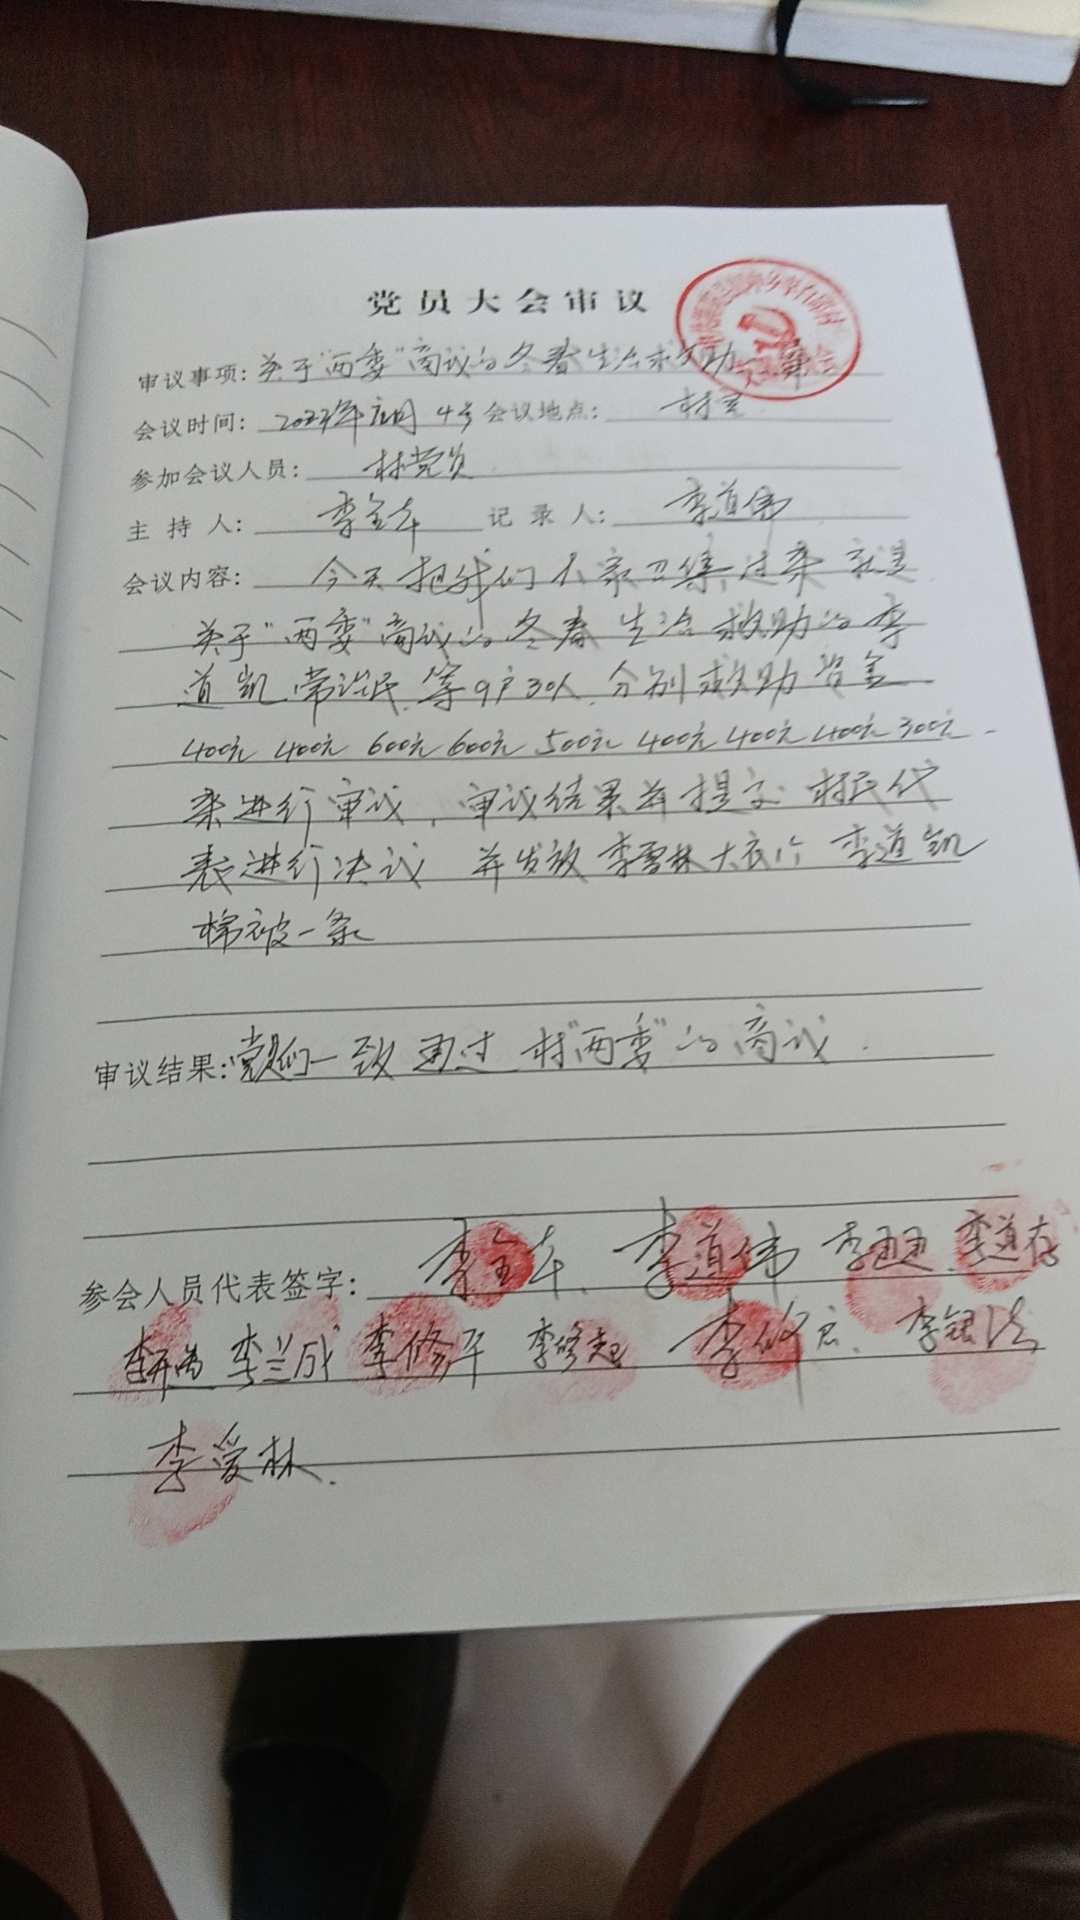 党员大会审议
审议事项: 关于"两委"商议的冬春生活救助
会议时间: 年 4号 会议地点: 村室
参加会议人员: 村党员
主持人: 李全 记录人: 李道伟
会议内容: 今天把我们大家召集过来 就是
关于"两委"商议的冬春生活救助的李
道凯 常 民 等9户30人 分别救助资金
400元 400元 600元 600元 500元 400元 400元 400元 300元
来进行审议, 审议结果并提交 村民代
表进行决议 并发放 李雪林大衣1个 李道凯
棉被一条
审议结果: 党员们一致通过 村"两委"的商议.
参会人员代表签字: 李全 、李道伟 李 李道存
李 李兰成 李修平 李修起 李修 李银法
李爱林.